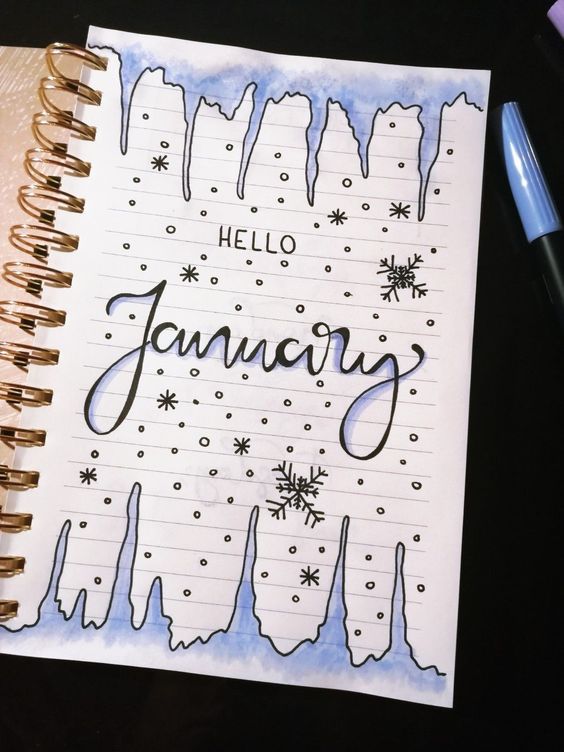 HELLO
January